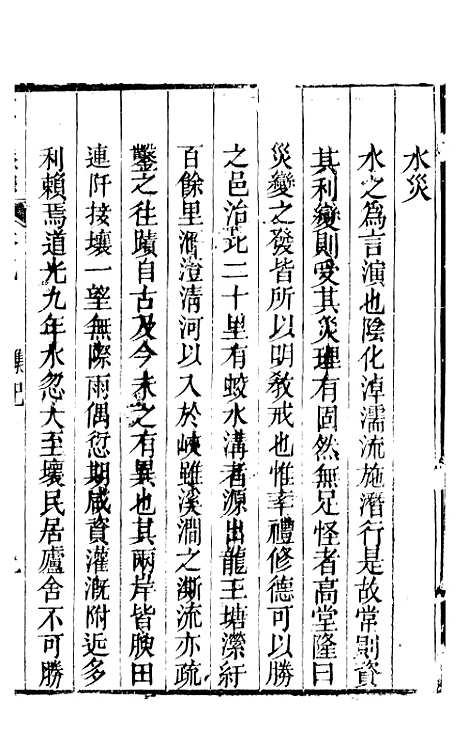 水災
水之爲言演也陰化淖濡流施潛行是故常則資
其利變則受其災理有固然無足怪者高堂隆曰
災變之發皆所以明教戒也惟率禮修德可以勝
之邑治北二十里有蛟水溝者源出龍王塘瀠紆
百餘里滙澄清河以入於峽雖溪澗之澌流亦疏
鑿之往蹟自古及今未之有異也其兩岸皆腴田
連阡接壤一望無際雨偶愆期咸資灌漑附近多
利賴焉道光九年水忽大至壞民居廬舍不可勝
雜記